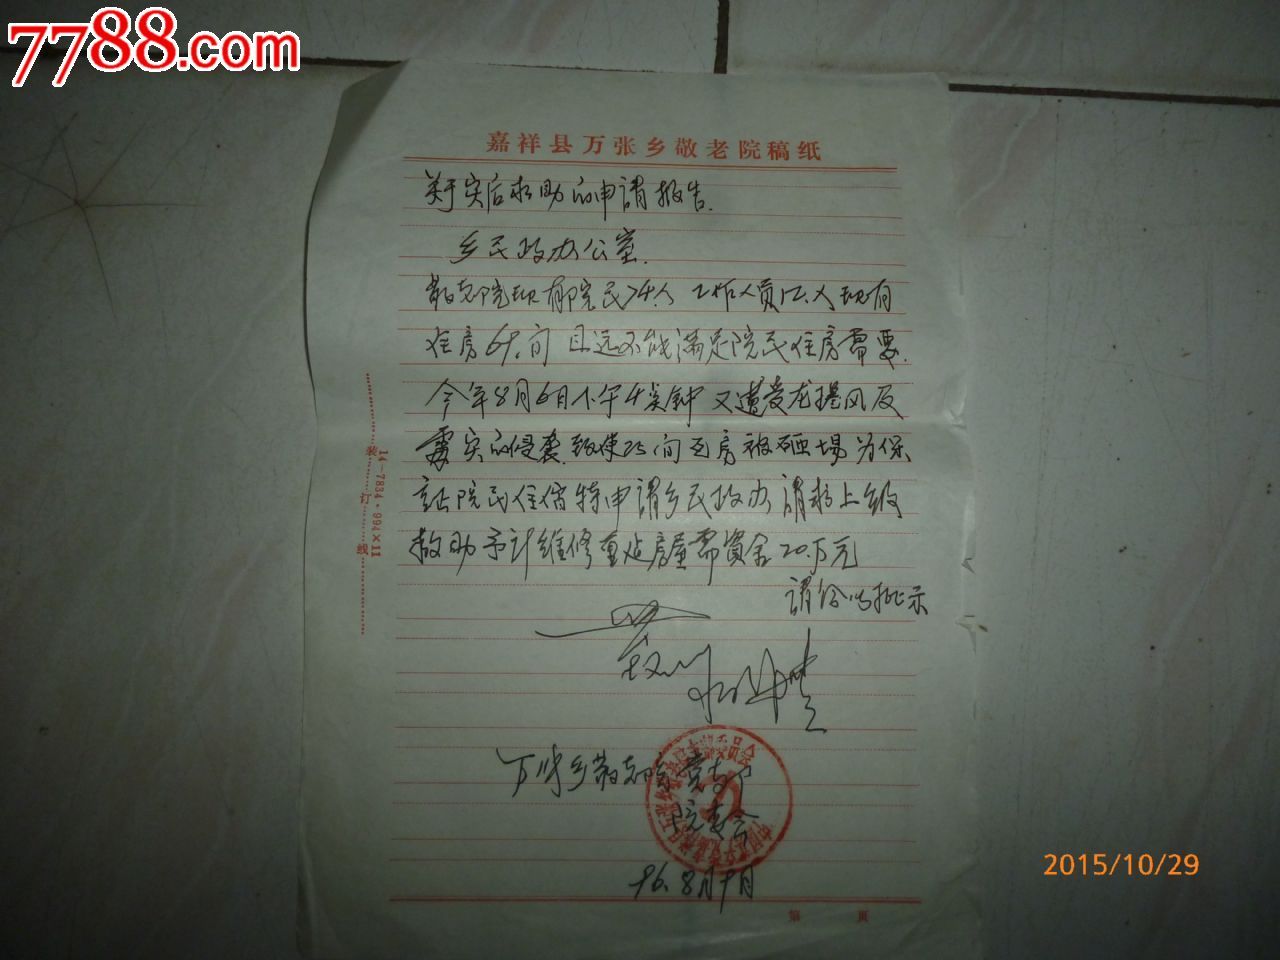 7788.com
嘉祥县万张乡敬老院稿纸
关于灾后求助的申請报告.
乡民政办公室.
敬老院现有院民74人 工作人员12人现有
住房69间 且远不能满足院民住房需要.
今年8月6日下午4点钟又遭受龙捲风及
雹灾的侵袭.致使25间瓦房被砸塌为保
证院民住宿特申请乡民政办請求上级
救助予计维修重建房屋需資金20万元
請给以批示
万张乡敬老院党支部
院委会
96.8月9日
14—7834·994×11
装
订
线
第 页
2015/10/29